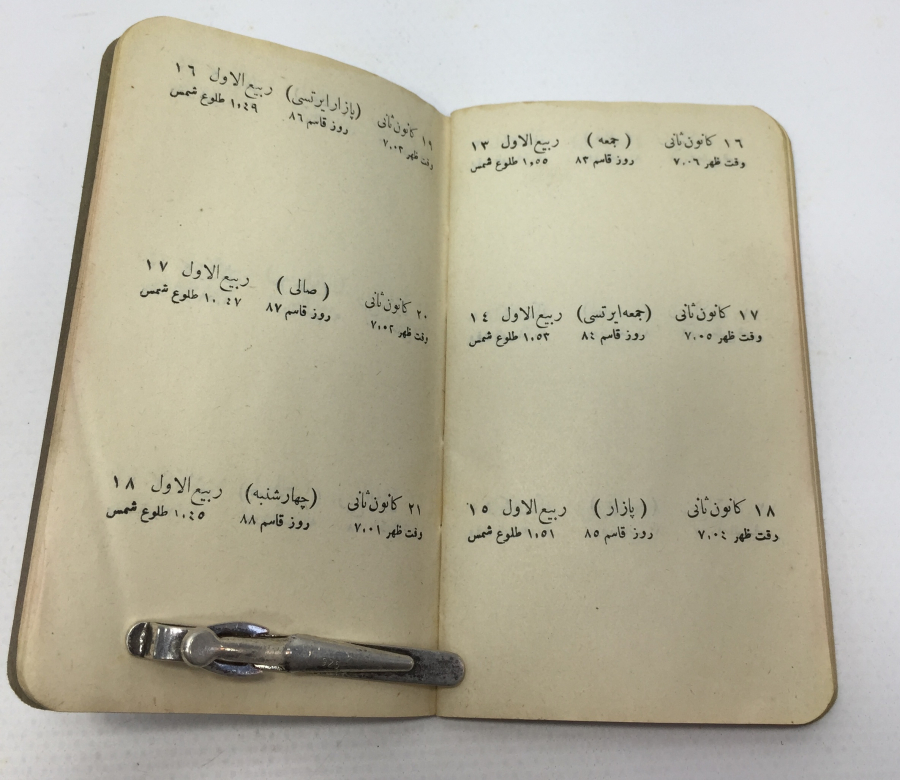 ١٦ كانون ثانی ( جمعه ) ربيع الاول ١٣
وقت ظهر ٧،٠٦ روز قاسم ٨٣ ١،٥٥ طلوع شمس
١٧ كانون ثانی (جمعه ايرتسی) ربيع الاول ١٤
وقت ظهر ٧،٠٥ روز قاسم ٨٤ ١،٥٣ طلوع شمس
١٨ كانون ثانی ( پازار ) ربيع الاول ١٥
وقت ظهر ٧،٠٤ روز قاسم ٨٥ ١،٥١ طلوع شمس
١٩ كانون ثانی (پازار ايرتسی) ربيع الاول ١٦
وقت ظهر ٧،٠٣ روز قاسم ٨٦ ١،٤٩ طلوع شمس
٢٠ كانون ثانی ( صالی ) ربيع الاول ١٧
وقت ظهر ٧،٠٢ روز قاسم ٨٧ ١،٤٧ طلوع شمس
٢١ كانون ثانی (چهارشنبه) ربيع الاول ١٨
وقت ظهر ٧،٠١ روز قاسم ٨٨ ١،٤٥ طلوع شمس